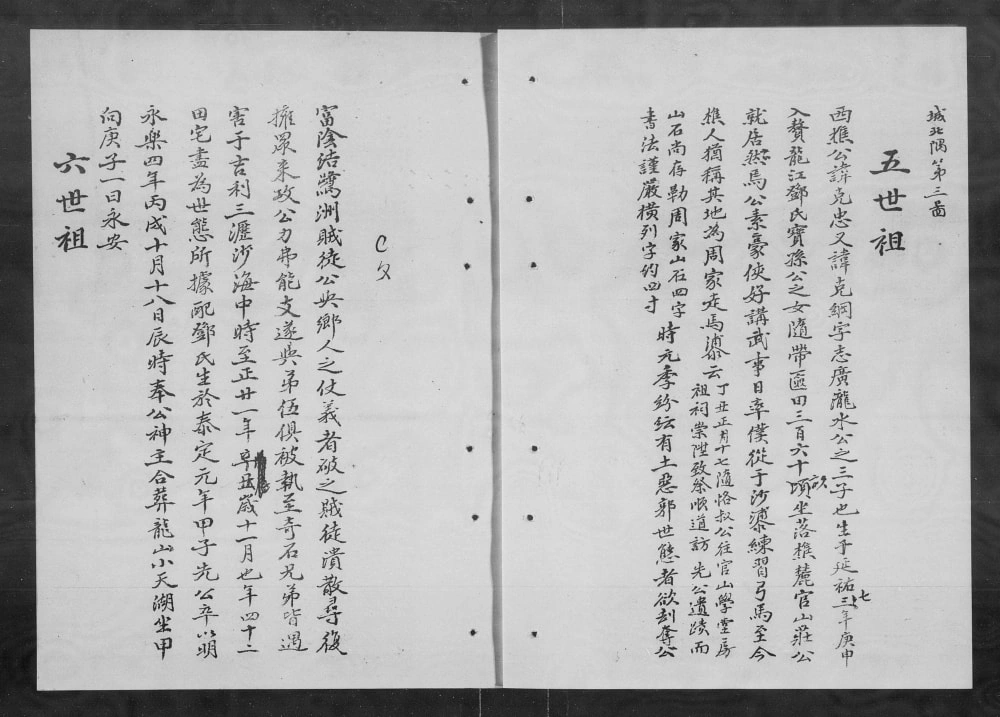 城北隅第三啚
五世祖
西樵公諱克忠又諱克綱字志廣瀧水公之三子也生于延祐三七年庚申
入贅龍江鄧氏寶孫公之女隨帶匳田三百六十頃畝坐落樵麓官山莊公
就居然馬公素豪俠好講武事日率僕從于沙溙練習弓馬至今
樵人猶稱其地為周家走馬溙云丁丑正月十七隨恪叔公往官山學堂房
祖祠崇陞致祭順道訪先公遺蹟而
山石尚存勒周家山石四字
書法謹嚴橫列字約四寸
時元季紛紜有土惡郭世態者欲刦奪公
C
攵
富陰結鷺洲賊徒公與鄉人之仗義者破之賊徒潰散尋復
擁眾來攻公力弗能支遂與弟伍俱被執至奇石兄弟皆遇
害于吉利三瀝沙海中時至正廿一年辛丑歲十一月也年四十二
田宅盡為世態所據配鄧氏生於泰定元年甲子先公卒以明
永樂四年丙戌十月十八日辰時奉公神主合葬龍山小天湖坐甲
向庚子一曰永安
六世祖